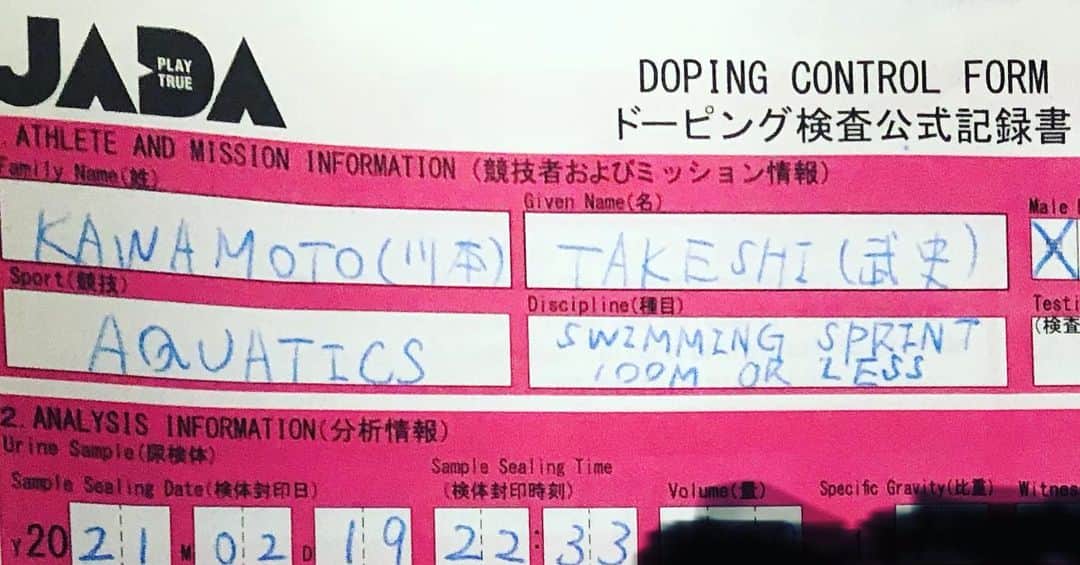 JADA
PLAY
TRUE
DOPING CONTROL FORM
ドーピング検査公式記録書
. ATHLETE AND MISSION INFORMATION (競技者およびミッション情報)
Family Name(姓)
Given Name(名)
Male
KAWAMOTO(川本)
TAKESHI(武史)
X
Sport(競技)
Discipline(種目)
(検査
AQUATICS
SWIMMING SPRINT
100M OR LESS
2. ANALYSIS INFORMATION(分析情報)
Urine Sample(尿検体)
Sample Sealing Date(検体封印日)
Sample Sealing Time
(検体封印時刻)
Volume(量)
Specific Gravity(比重)
Y 20 21 M 02 D 19 22:33